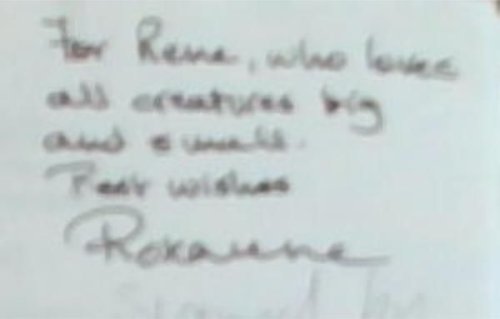 For Rene, who loves
all creatures big
and small.
Best wishes
Roxanne